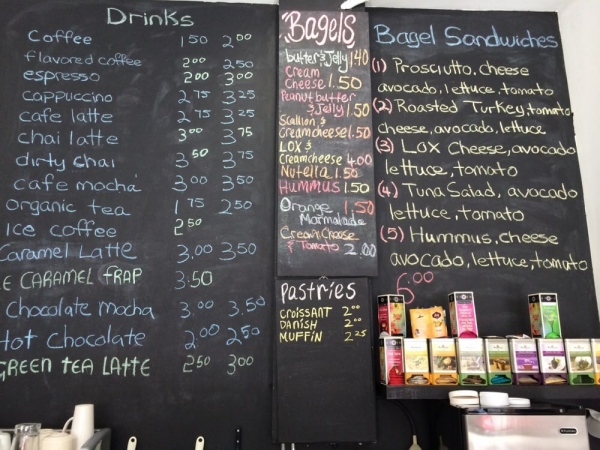 Drinks
Coffee 1 50 2 00
flavored coffee 2 00 2 50
espresso 2 00 3 00
cappuccino 2 75 3 25
cafe latte 2 75 3 25
chai latte 3 00 3 75
dirty chai 3 50 3 75
cafe mocha 3 00 3 50
organic tea 1 75 2 50
Ice coffee 2 50
Caramel Latte 3.00 3.50
E CARAMEL FRAP 3.50
Chocolate mocha 3.00 3.50
Hot Chocolate 2 00 2 50
GREEN TEA LATTE 2 50 3 00
Bagels
butter & Jelly 1.40
Cream
Cheese 1.50
Peanut butter
& Jelly 1.50
Scallion &
Creamcheese 1.50
LOX &
Creamcheese 4.00
Nutella 1.50
HUMMUS 1.50
Orange 1.50
Marmalade
Cream Cheese
& Tomato 2.00
Pastries
CROISSANT 2 00
DANISH 2 00
MUFFIN 2 25
Bagel Sandwiches
(1) Prosciutto, cheese
avocado, lettuce, tomato
(2) Roasted Turkey, tomato
cheese, avocado, lettuce
(3) Lox Cheese, avocado
lettuce, tomato
(4) Tuna Salad, avocado
lettuce, tomato
(5) Hummus, cheese
avocado, lettuce, tomato
6.00